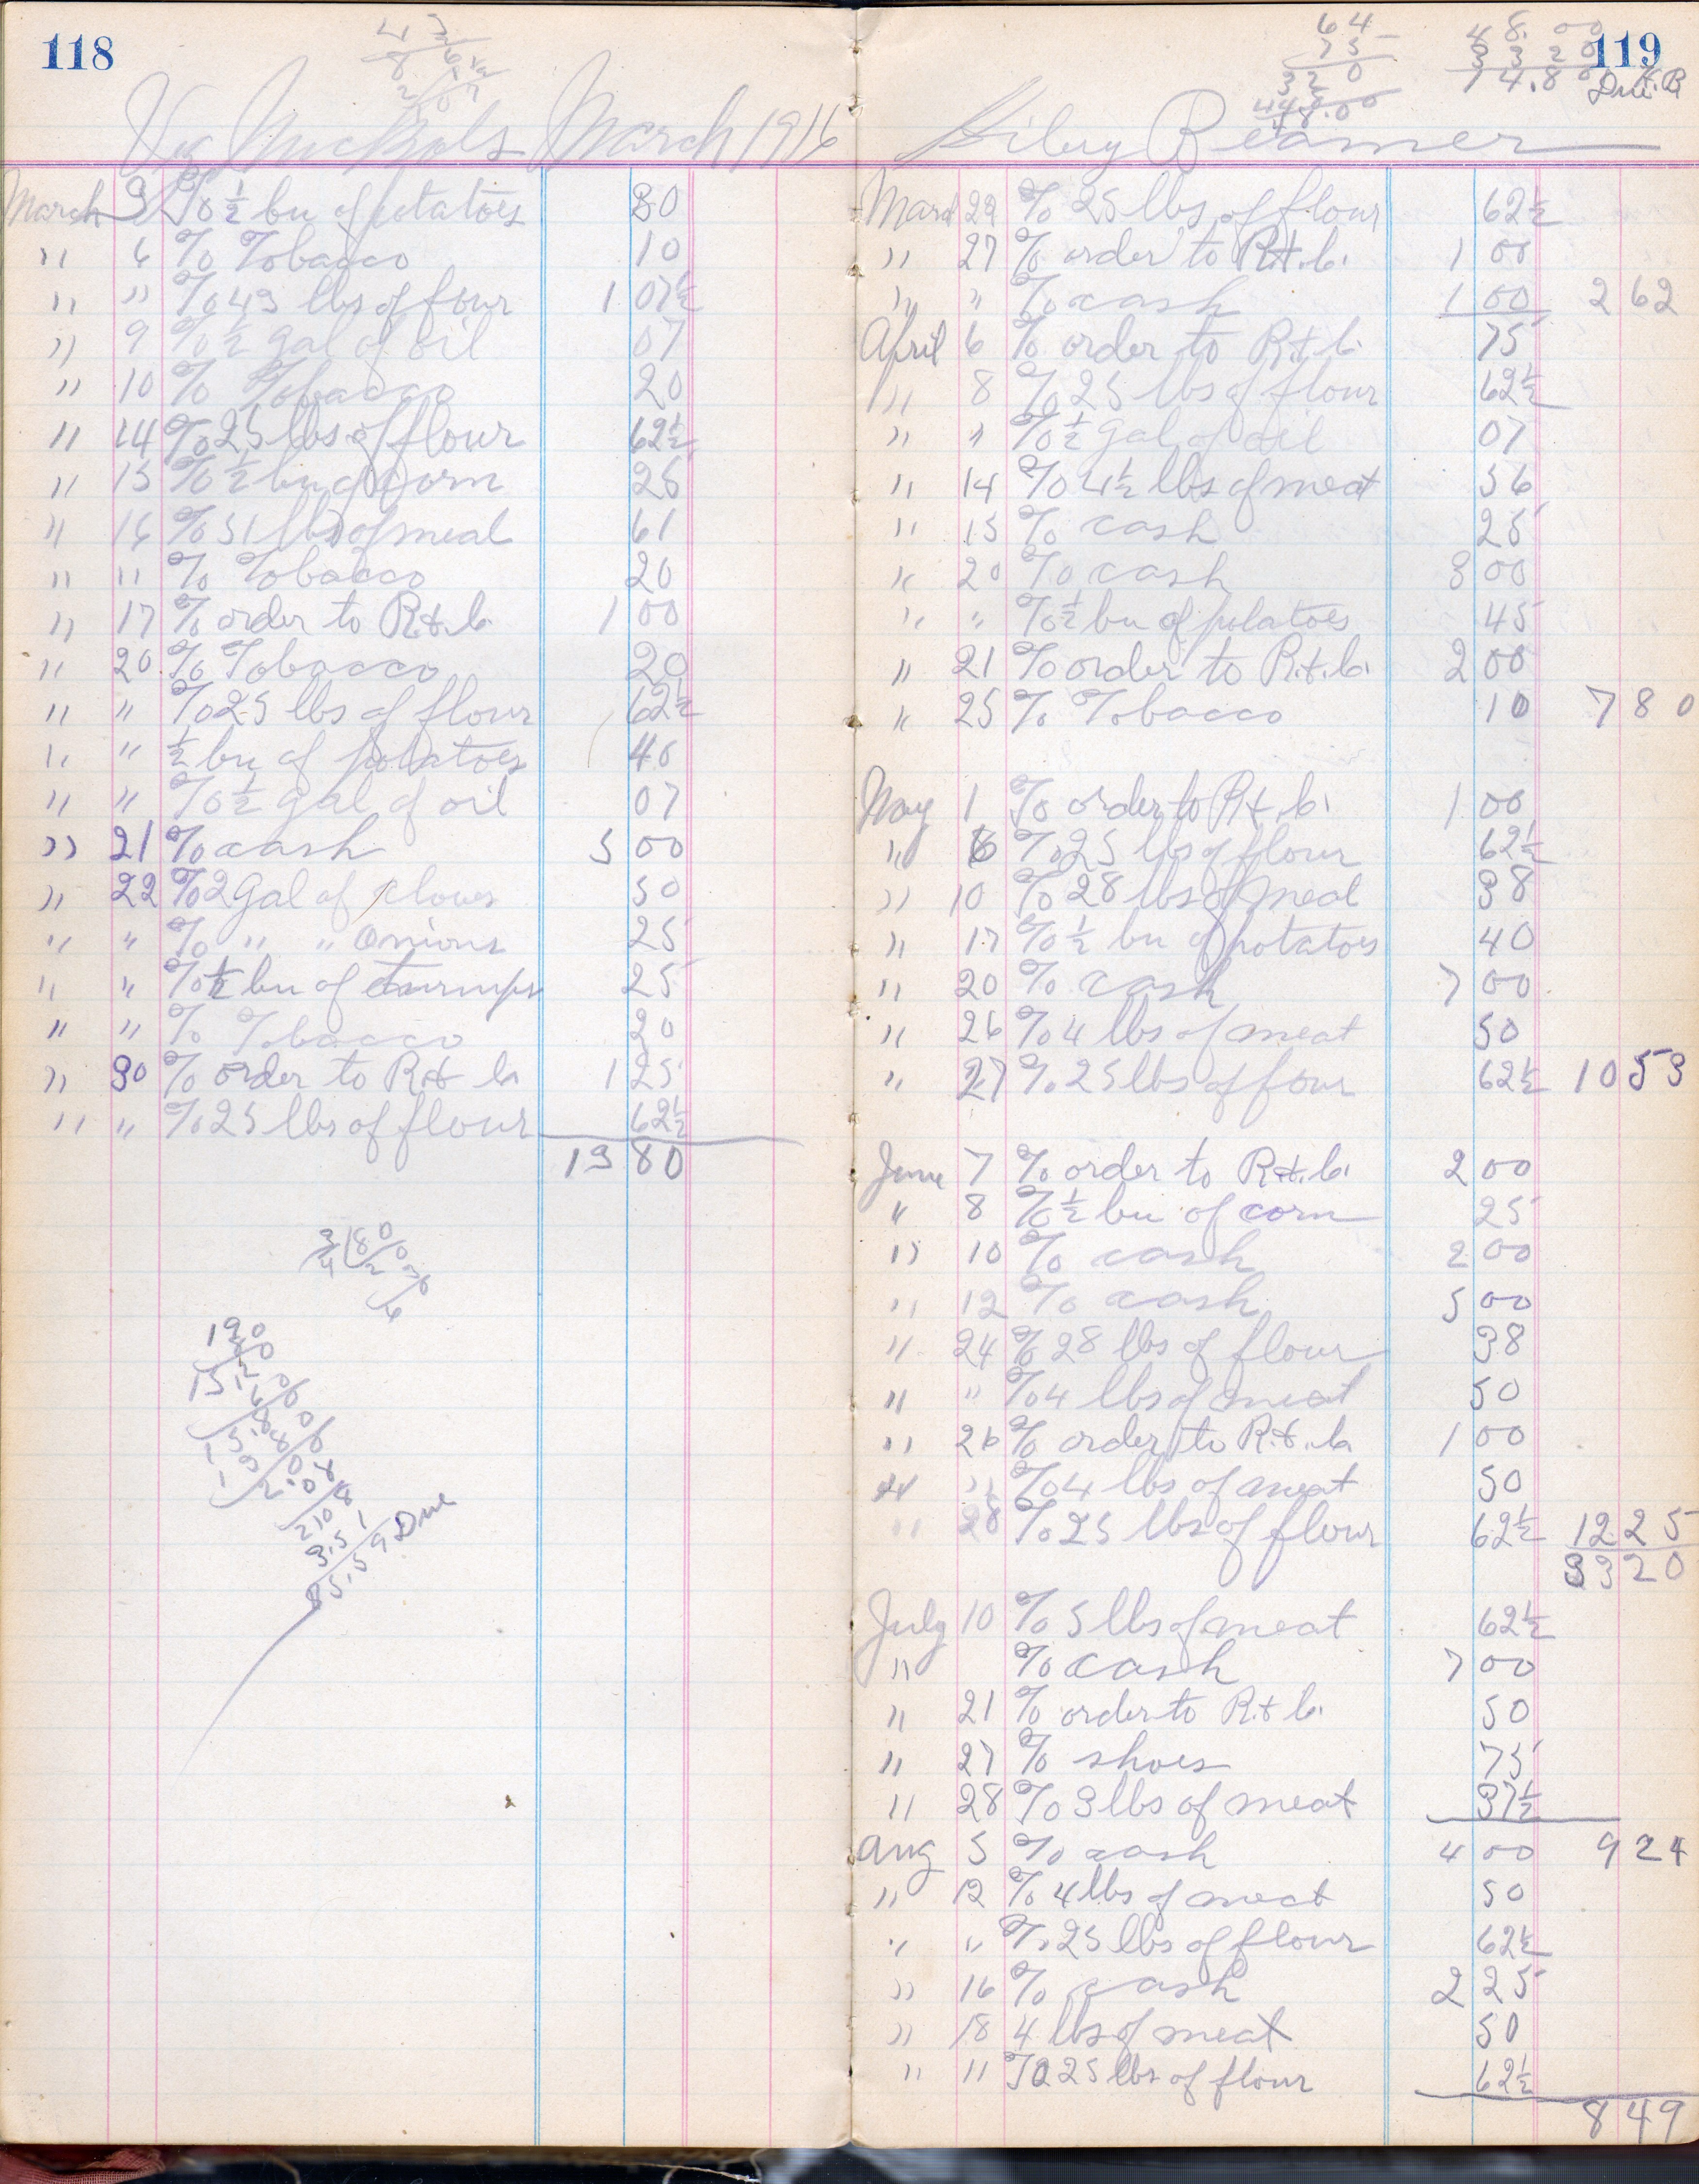 118
March 1916
March 3 % ½ bu of potatoes 80
" 6 % Tobacco 10
" " % 43 lbs of flour 1 07½
" 9 % ½ gal of oil 07
" 10 % Tobacco 20
" 14 % 25 lbs of flour 62½
" 15 % ½ bu of corn 25
" 16 % 31 lbs of meal 61
" " % Tobacco 20
" 17 % order to R. & C. 1 00
" 20 % Tobacco 20
" " % 25 lbs of flour 62½
" " ½ bu of potatoes 40
" " % ½ gal of oil 07
" 21 % cash 5 00
" 22 % 2 Gal of 50
" " % " " onions 25
" " % ½ bu of turnips 25
" " % Tobacco 20
" 30 % order to R & Co 1 25
" " % 25 lbs of flour 62½
13 80
190
Due
119
64
75
320
448
48.00
48.00
33 20
14.80
Due R.B.
Beamer
March 22 % 25 lbs of flour 62½
" 27 % order to R. & C. 1 00
" " % cash 1 00 2 62
April 6 % order to R & C. 75
" 8 % 25 lbs of flour 62½
" " % ½ gal of oil 07
" 14 % 4½ lbs of meat 56
" 15 % cash 25
" 20 % cash 3 00
" " % ½ bu of potatoes 45
" 21 % order to R. & C. 2 00
" 25 % Tobacco 10 7 80
May 1 % order to R & C. 1 00
" 6 % 25 lbs of flour 62½
" 10 % 28 lbs of meal 38
" 17 % ½ bu of potatoes 40
" 20 % cash 7 00
" 26 % 4 lbs of meat 50
" 27 % 25 lbs of flour 62½ 10 53
June 7 % order to R. & C. 2 00
" 8 % ½ bu of corn 25
" 10 % cash 2 00
" 12 % cash 5 00
" 24 % 28 lbs of flour 38
" " % 4 lbs of meat 50
" 26 % order to R. & Co. 1 00
" " % 4 lbs of meat 50
" 28 % 25 lbs of flour 62½ 12 25
33 20
July 10 % 5 lbs of meat 62½
" % cash 7 00
" 21 % order to R. & C. 50
" 27 % shoes 75
" 28 % 3 lbs of meat 37½
Aug 5 % cash 4 00 9 24
" 12 % 4 lbs of meat 50
" " % 25 lbs of flour 62½
" 16 % cash 2 25
" 18 4 lbs of meat 50
" 11 % 25 lbs of flour 62½
8 49